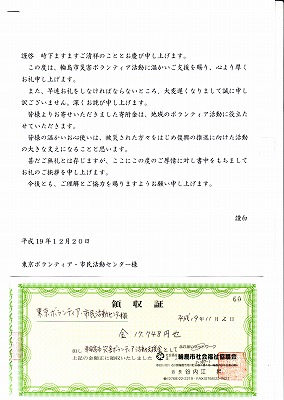 謹啓 時下ますますご清祥のこととお慶び申し上げます。
この度は、輪島市災害ボランティア活動に温かいご支援を賜り、心より厚く
お礼申し上げます。
また、早速お礼をしなければならないところ、大変遅くなりまして誠に申し
訳ございません。深くお詫び申し上げます。
皆様よりお寄せいただきました寄附金は、地域のボランティア活動に役立たさ
せていただきます。
皆様の温かいお心遣いは、被災された方々をはじめ復興の推進に向けた活動
の大きな支えになることと思います。
甚だご無礼とは存じますが、ここにこの度のご厚情に対し書中をもちまして
お礼のご挨拶を申し上げます。
今後とも、ご理解とご協力を賜りますようお願い申し上げます。
謹白
平成19年12月20日
東京ボランティア・市民活動センター様
領収証
60
東京ボランティア・市民活動センター様
平成19年11月2日
金 17,748円也
但し 輪島市災害ボランティア活動支援金として
上記の金額正に領収いたしました
輪島市社会福祉協議会
会長 谷内江